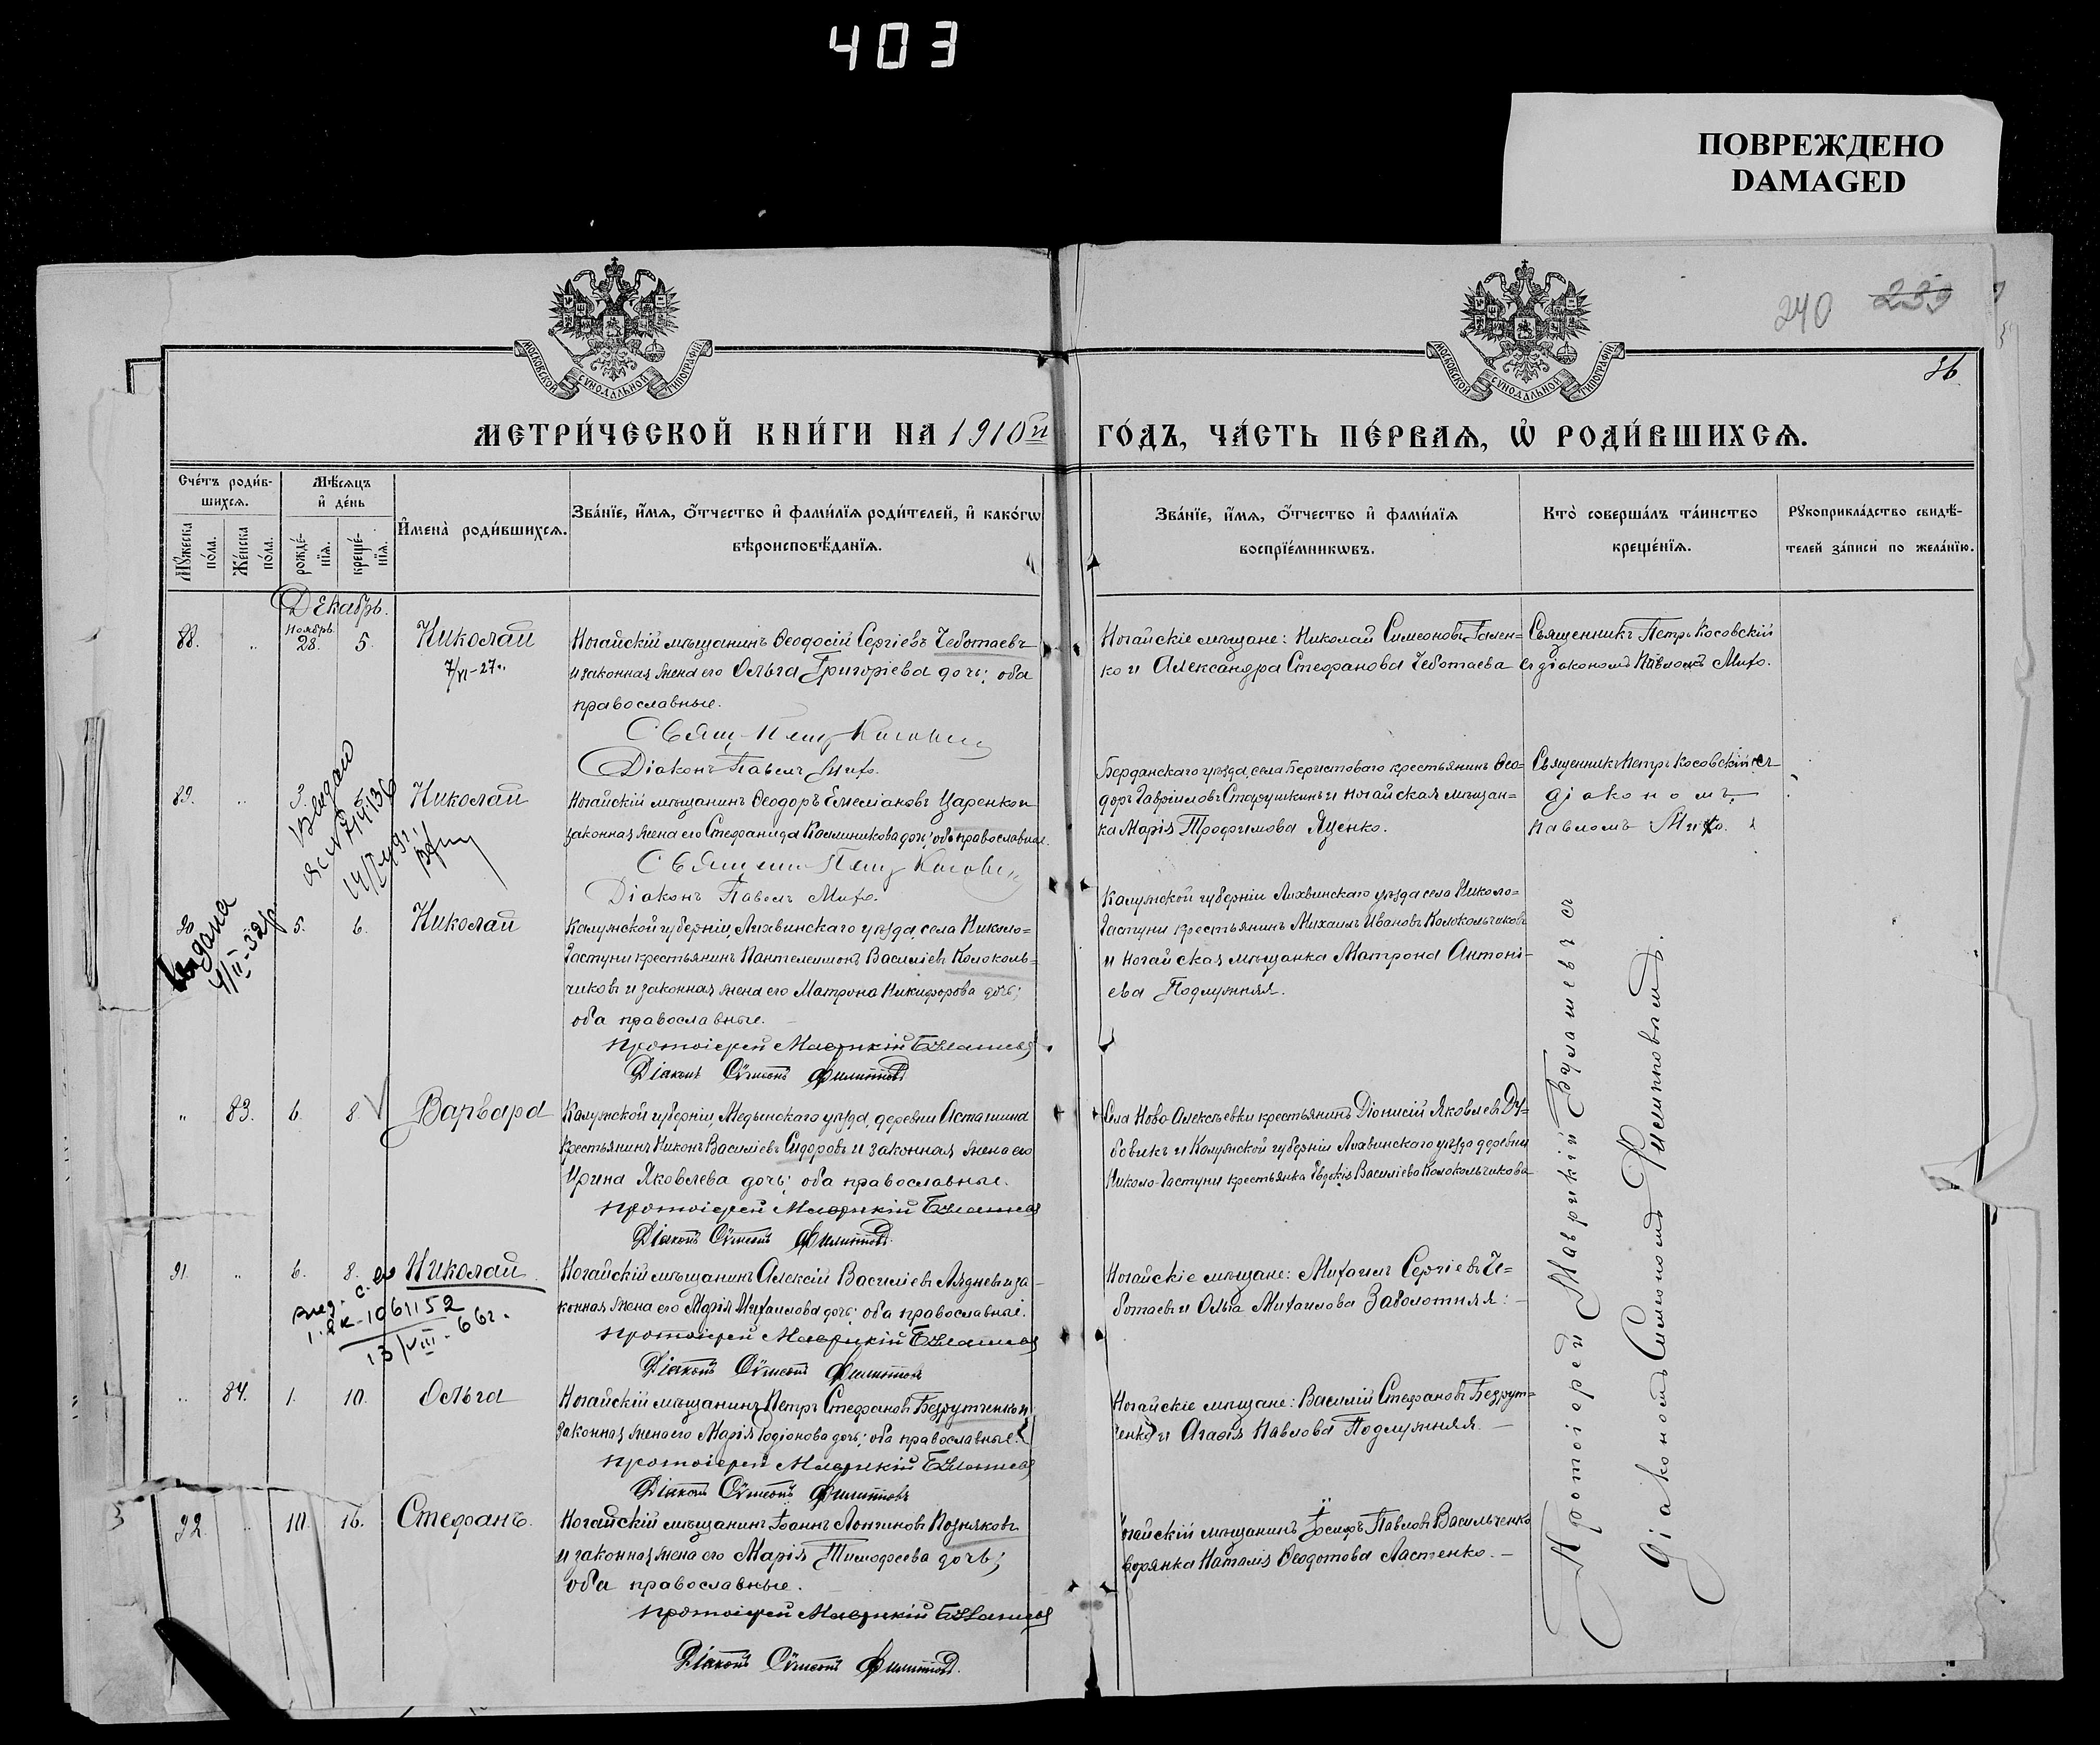 403
ПОВРЕЖДЕНО
DAMAGED
240 239
86.
МОСКОВСКОЙ СѴНОДАЛЬНОЙ ТИПОГРАФІИ
МОСКОВСКОЙ СѴНОДАЛЬНОЙ ТИПОГРАФІИ
МЕТРИ́ЧЕСКОЙ КНИ́ГИ НА 1910й ГО́ДЪ, ЧА́СТЬ ПЕ́РВАѦ, Ѡ҆ РОДИ́ВШИХСѦ.
Сче́тъ роди́в-
шихсѧ.
Мꙋ́жеска по́ла.
Же́нска по́ла.
Мѣ́сѧцъ
и҆ де́нь
рожде́-
нїѧ.
креще́-
нїѧ.
И҆мена̀ роди́вшихсѧ.
Зва́нїе, и҆́мѧ, ѻ҆́тчество и҆ фами́лїѧ роди́телей, и҆ како́гѡ
вѣроисповѣ́данїѧ.
Зва́нїе, и҆́мѧ, ѻ҆́тчество и҆ фами́лїѧ
воспрїе́мникѡвъ.
Кто̀ соверша́лъ та́инство
креще́нїѧ.
Рꙋкоприкла́дство свидѣ́-
телей за́писи по жела́нїю.
Декабрь.
88. " Ноябрь 28. 5. Николай
7/VI-27"
Ногайскій мѣщанинъ Ѳеодосій Сергіевъ Чеботаевъ
и законная жена его Ольга Григоріева дочь; оба
православные.
Свящ. Петр Косовскій
Діаконъ Павелъ Михо.
Ногайскіе мѣщане: Николай Симеоновъ Гален=
ко и Александра Стефанова Чеботаева
Священникъ Петръ Косовскій
съ діакономъ Павломъ Михо.
89. " 3. Николай
Ногайскій мѣщанинъ Ѳеодоръ Емеліановъ Царенко и
законная жена его Стефанида Калиникова дочь; оба православные.
Священник Петр Косовскій
Діаконъ Павелъ Михо.
Бердянскаго уѣзда, села Берестоваго крестьянинъ Ѳео=
доръ Гавріиловъ Старушкинъ и Ногайская мѣщан=
ка Марія Трофимова Яценко.
Священникъ Петръ Косовскій съ
діакономъ
Павломъ Михо.
90 5. 6. Николай
Выдана
4/II-32г
Калужской губерніи, Лихвинскаго уѣзда, села Николо=
Гастуни крестьянинъ Пантелеимонъ Василіевъ Колоколь=
чиковъ и законная жена его Матрона Никифорова дочь;
оба православные.
Протоіерей Маврикій Булашевъ
Діаконъ Сѵмеонъ Филипповъ
Калужской губерніи Лихвинскаго уѣзда села Николо=
Гастуни крестьянинъ Михаилъ Ивановъ Колокольчиковъ
и Ногайская мѣщанка Матрона Антоні-
ева Подлужняя.
" 83. 6. 8. Варвара
Калужской губерніи, Медынскаго уѣзда, деревни Асташина
крестьянинъ Никонъ Василіевъ Сидоровъ и законная жена его
Ирина Яковлева дочь; оба православные.
Протоіерей Маврикій Булашевъ
Діаконъ Сѵмеонъ Филипповъ.
Села Ново-Алексѣевки крестьянинъ Діонисій Яковлевъ Ду=
бовикъ и Калужской губерніи Лихвинскаго уѣзда деревни
Николо-Гастуни крестьянка Евдокія Василіева Колокольчикова
91. " 6. 8. Николай
1061152
13/VIII-66г.
Ногайскій мѣщанинъ Алексій Василіевъ Лядневъ и за-
конная жена его Марія Михаилова дочь; оба православные.
Протоіерей Маврикій Булашевъ
Діаконъ Сѵмеонъ Филипповъ
Ногайскіе мѣщане: Михаилъ Сергіевъ Че=
ботаевъ и Ольга Михаилова Заболотняя:
" 84. 1. 10. Ольга
Ногайскій мѣщанинъ Петръ Стефановъ Безрутченко и
законная жена его Марія Родіонова дочь; оба православные.
Протоіерей Маврикій Булашевъ
Діаконъ Сѵмеонъ Филипповъ
Ногайскіе мѣщане: Василій Стефановъ Безрут=
ченко и Агаѳія Павлова Подлужняя.
92. " 10. 16. Стефанъ.
Ногайскій мѣщанинъ Іоаннъ Лонгиновъ Позняковъ
и законная жена его Марія Тимоѳеева дочь;
оба православные.
Протоіерей Маврикій Булашевъ
Діаконъ Сѵмеонъ Филипповъ.
Ногайскій мѣщанинъ Іосифъ Павловъ Васильченко
дворянка Наталія Ѳеодотова Ластенко.
Протоіерей Маврикій Булашевъ съ
діакономъ Симеономъ Филипповымъ.